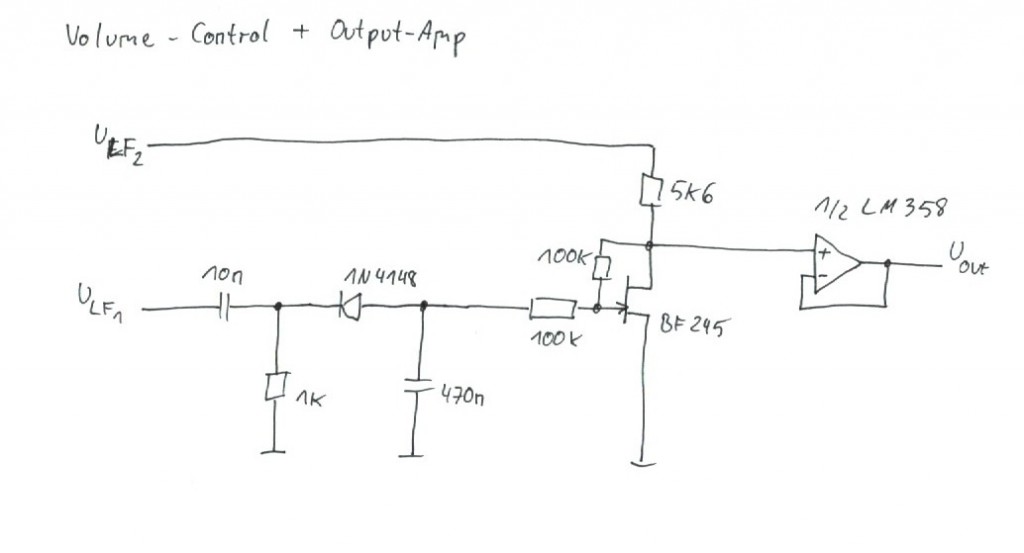 Volume - Control + Output-Amp
ULF2
5k6
1/2 LM358
100k
+
-
Uout
10n
1N4148
ULF1
100k
BF245
1k
470n